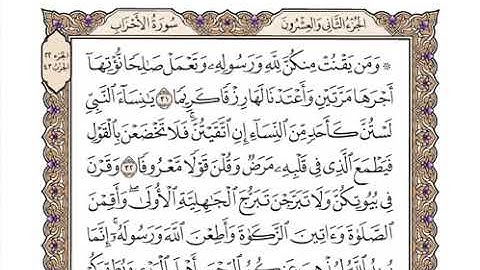 الجزء الثاني والعشرون
سورة الأحزاب
الجزء ٢٢
الحزب ٤٣
۞ وَمَن يَقْنُتْ مِنكُنَّ لِلَّهِ وَرَسُولِهِۦ وَتَعْمَلْ صَٰلِحًا نُّؤْتِهَآ
أَجْرَهَا مَرَّتَيْنِ وَأَعْتَدْنَا لَهَا رِزْقًا كَرِيمًا ٣١ يَٰنِسَآءَ ٱلنَّبِىِّ
لَسْتُنَّ كَأَحَدٍ مِّنَ ٱلنِّسَآءِ إِنِ ٱتَّقَيْتُنَّ ۚ فَلَا تَخْضَعْنَ بِٱلْقَوْلِ
فَيَطْمَعَ ٱلَّذِى فِى قَلْبِهِۦ مَرَضٌ وَقُلْنَ قَوْلًا مَّعْرُوفًا ٣٢ وَقَرْنَ
فِى بُيُوتِكُنَّ وَلَا تَبَرَّجْنَ تَبَرُّجَ ٱلْجَٰهِلِيَّةِ ٱلْأُولَىٰ ۖ وَأَقِمْنَ
ٱلصَّلَوٰةَ وَءَاتِينَ ٱلزَّكَوٰةَ وَأَطِعْنَ ٱللَّهَ وَرَسُولَهُۥٓ ۚ إِنَّمَا
يُرِيدُ ٱللَّهُ لِيُذْهِبَ عَنكُمُ ٱلرِّجْسَ أَهْلَ ٱلْبَيْتِ وَيُطَهِّرَكُمْ